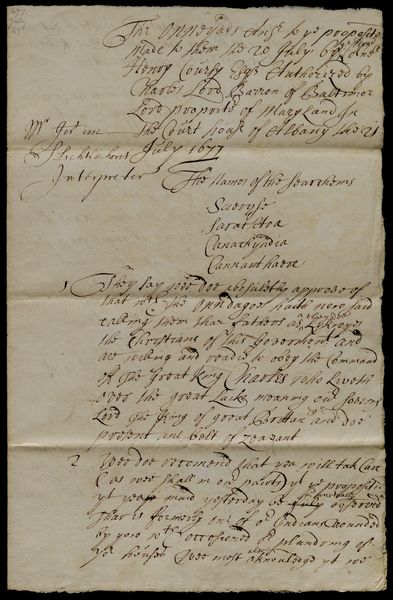 1677
The Onneyads Ansr: to ye proposito
made to them the 20 July 67 by Coll
Henry Coursy Esqr Authorized by
Charles Lord Barron of Baltimor
Lord propritr of Maryland In
the Court house of Albany the 21
July 1677
Interpreter
The Names of the Searchems
Sweryse
Canachyndia
Cannanthaere
1 They say wee doe absolutly approve of
that wch The Onndagoes hath now said
calling them thar fathers as
the Christians of this Goverment and
are willing and readie to obey the Command
of The Great King Charles who Liveth
over the great Lacke meaning our Soverin
Lord The King of great Brittan and doe
present ane Belt of Zeawant
2 Wee doe recomend that yea will tak Care
(as wee shall in our pairt) yt ye propositi
yt yea maid yesterday be observed
That is formerly one of or Indians wounded
by yow wch occasioned ye plandring of
ye houses Wee most aknowledg yt we